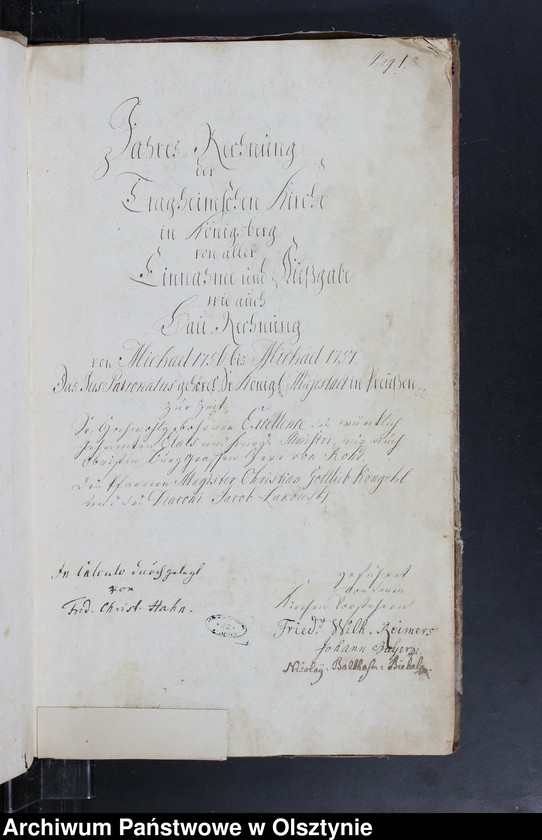 Pag 1.
Jahres Rechnung
der
Tragheimschen Kirche
in Königsberg
von aller
Einnahme und Außgabe
wie auch
Bau Rechnung
von Michael 1756 bis Michael 1757
Das Jus Patronatus gehöret Sr Königl Majestaet in Preußen
zur Zeit
Sr Hochwohlgebohrnen Excellence der würcklich
Geheimten Etats und Kriegs Ministri, wie auch
Obristen Burggraffen Herr von Rohd
die Pfarrern Magister Christian Gottlieb Kongehl
und der Diaconi Jacob
In Calculo durchgelegt
von
Frid. Christ. Hahn.
geführet
von denen
Kirchen Vorstehern
Friedr Wilh. Reimers
Johann Bayer
Nicolaÿ. Balthasr.
Archiwum Państwowe w Olsztynie